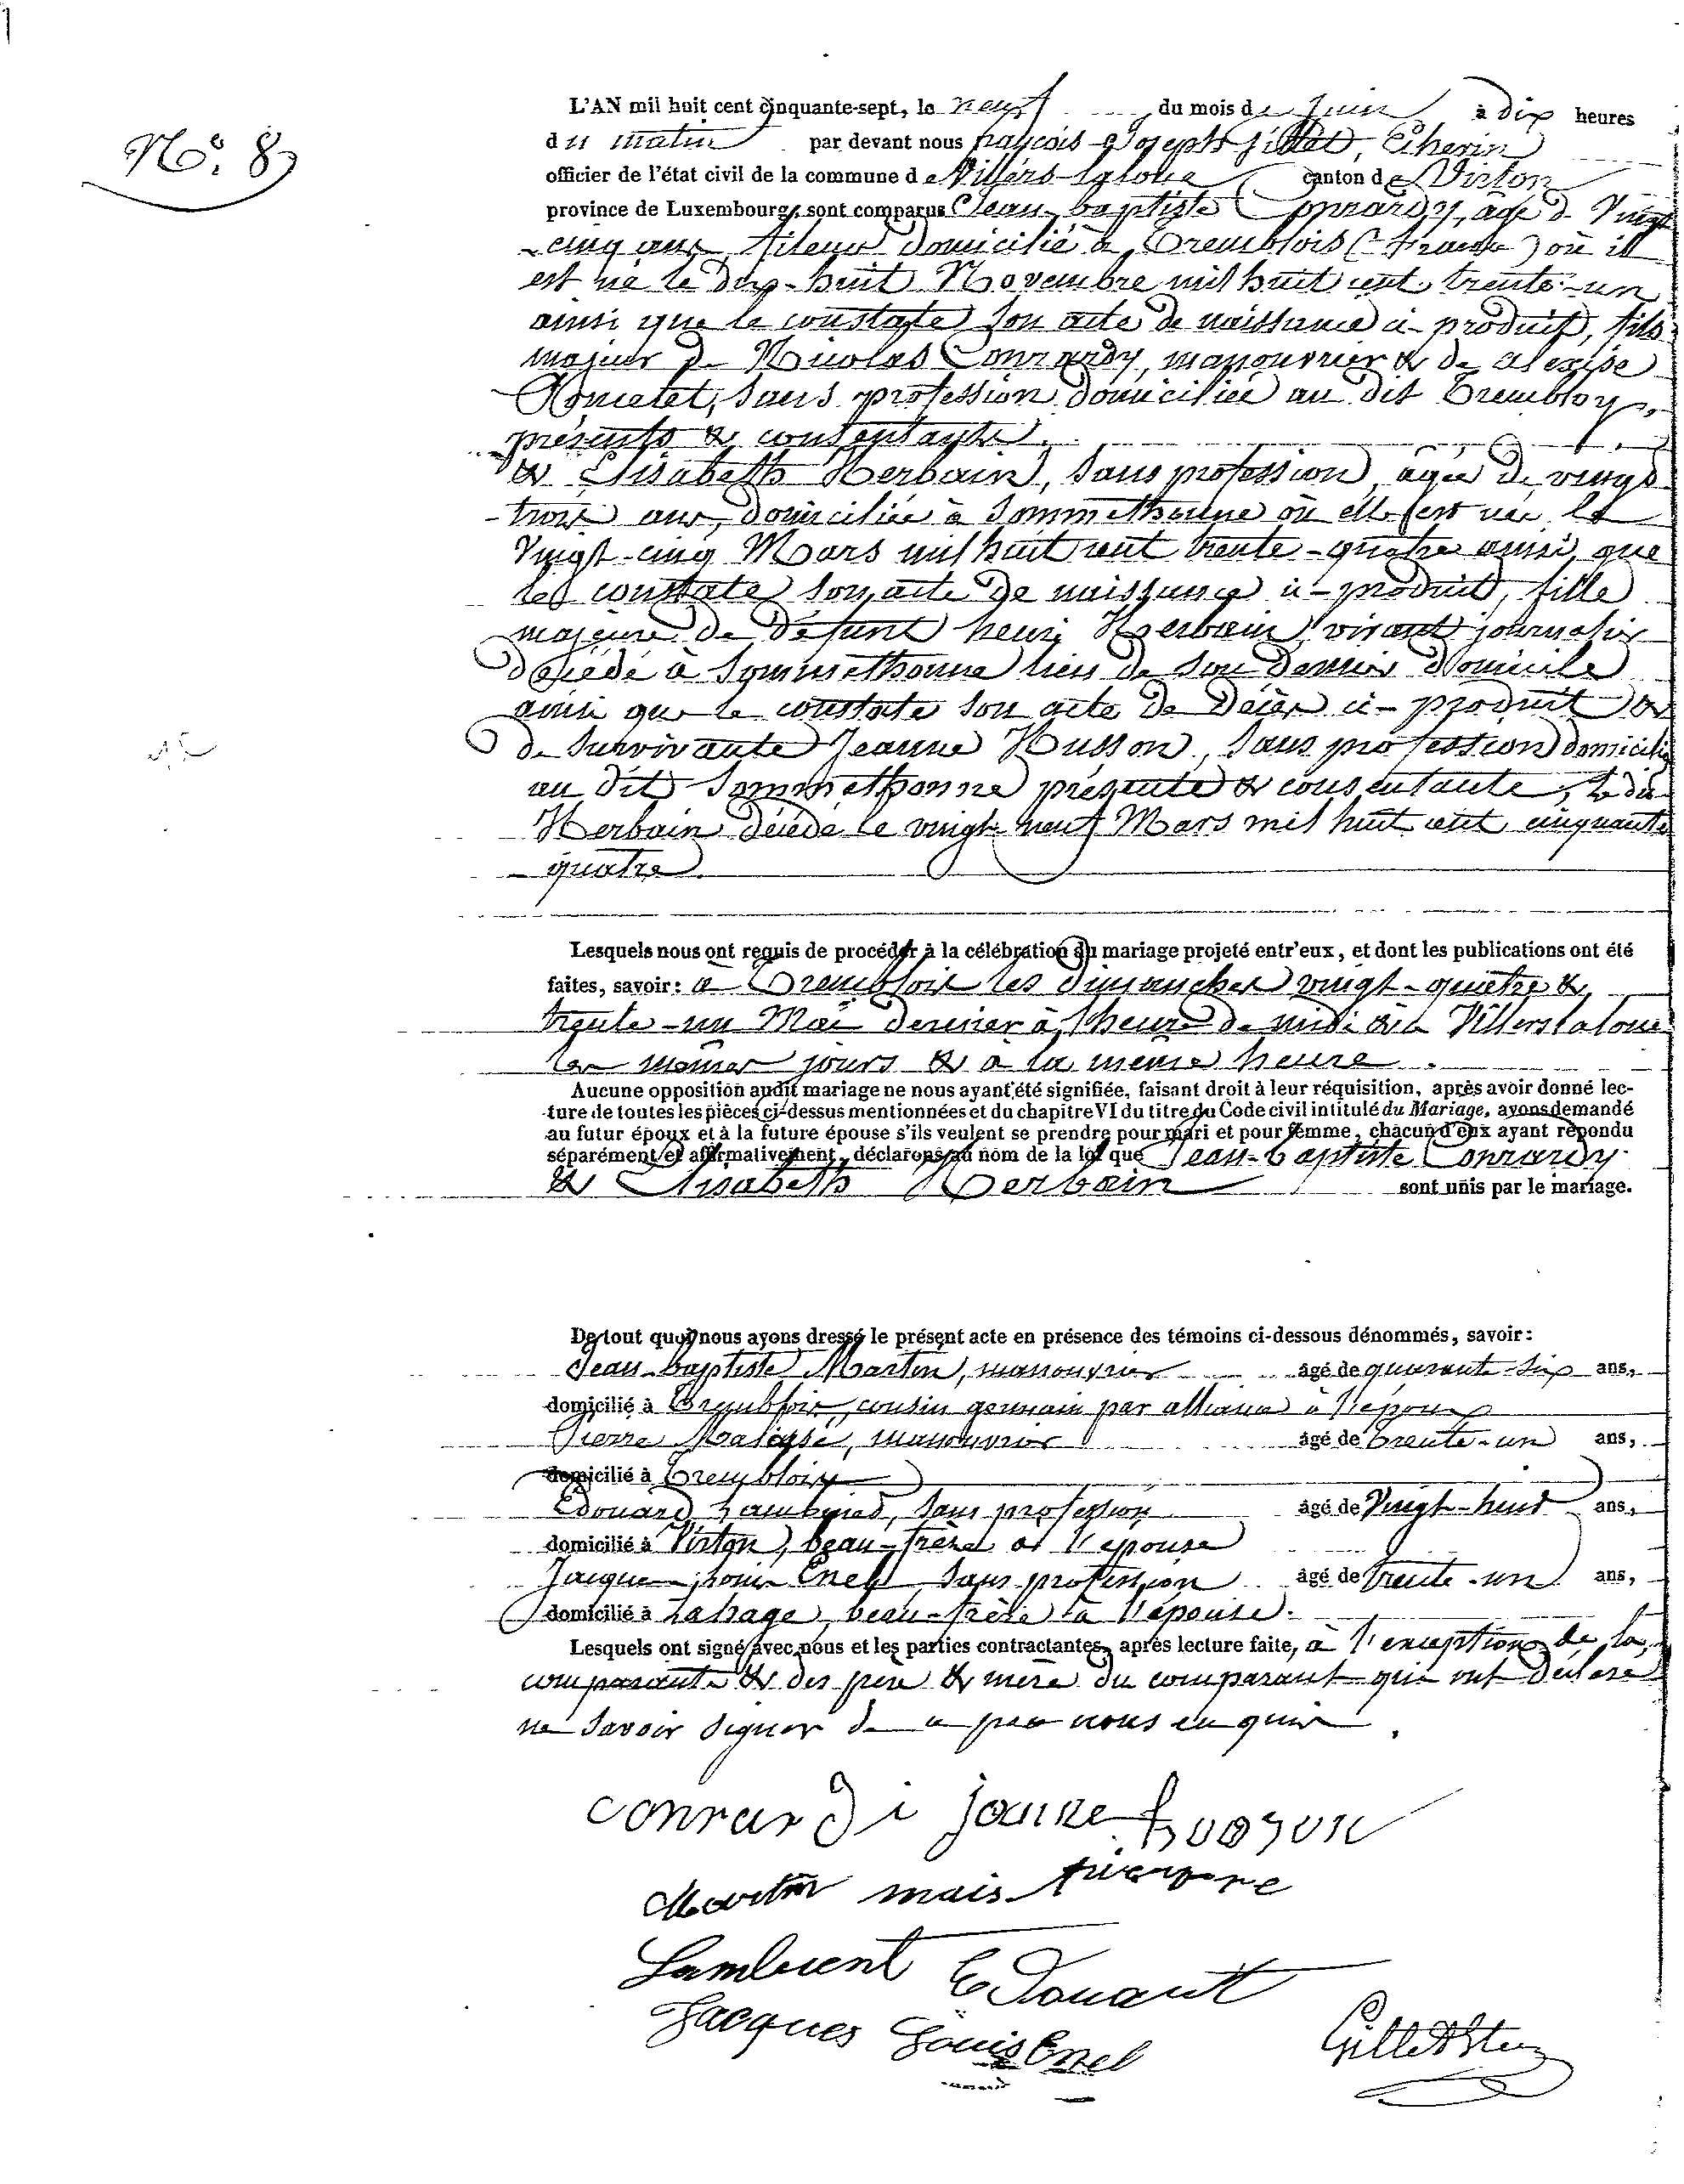 N.° 8
L'AN mil huit cent cinquante-sept, le neuf du mois de Juin à dix heures
du matin par devant nous françois Joseph Gillet, Echevin
officier de l'état civil de la commune de Villers-laloue canton de Virton
province de Luxembourg, sont comparus Jean-baptiste Conrardy, âgé de Vingt
-cinq ans, fileur domicilié à Tremblois (france) où il
est né le dix-huit Novembre mil huit cent trente-un
ainsi que le constate son acte de naissance ci-produit, fils
majeur de Nicolas Conrardy, manouvrier & de alexise
sans profession domiciliée au dit Trembloy,
présents & consentants.
& Elisabeth Herbain, sans profession, âgée de vingt
-trois ans, domiciliée à Sommethonne où elle est née le
Vingt-cinq Mars mil huit cent trente-quatre ainsi que
le constate son acte de naissance ci-produit, fille
majeure de défunt henri Herbain vivant journalier
décédé à Sommethonne lieu de son dernier domicile
ainsi que le constate son acte de décès ci-produit &
de survivante Jeanne Husson, sans profession domiciliée
au dit Sommethonne présente & consentante, le dit
Herbain décédé le vingt-neuf Mars mil huit cent cinquante
-quatre.
Lesquels nous ont requis de procéder à la célébration du mariage projeté entr'eux, et dont les publications ont été
faites, savoir: à Tremblois les dimanches vingt-quatre &
trente-un Mai dernier à l'heure de midi & à Villers laloue
les mêmes jours & à la même heure.
Aucune opposition audit mariage ne nous ayant été signifiée, faisant droit à leur réquisition, après avoir donné lec-
ture de toutes les pièces ci-dessus mentionnées et du chapitre VI du titre du Code civil intitulé du Mariage, avons demandé
au futur époux et à la future épouse s'ils veulent se prendre pour mari et pour femme, chacun d'eux ayant répondu
séparément et affirmativement, déclarons au nom de la loi que Jean-baptiste Conrardy
& Elisabeth Herbain sont unis par le mariage.
De tout quoi nous avons dressé le présent acte en présence des témoins ci-dessous dénommés, savoir:
Jean-baptiste Martin, manouvrier âgé de quarante-six ans,
domicilié à Tremblois, cousin germain par alliance à l'époux
Pierre manouvrier âgé de trente-un ans,
domicilié à Tremblois
Edouard Lambinet, sans profession âgé de Vingt-huit ans,
domicilié à Virton, beau-frère à l'épouse
Jacques Louis Enel, sans profession âgé de trente-un ans,
domicilié à Lahage, beau-frère à l'épouse.
Lesquels ont signé avec nous et les parties contractantes, après lecture faite, à l'exception de la
comparante & des père & mère du comparant qui ont déclaré
ne savoir signer de ce par nous enquis.
conrardi janne husson
Martin
Edouart
Jacques Louis Enel